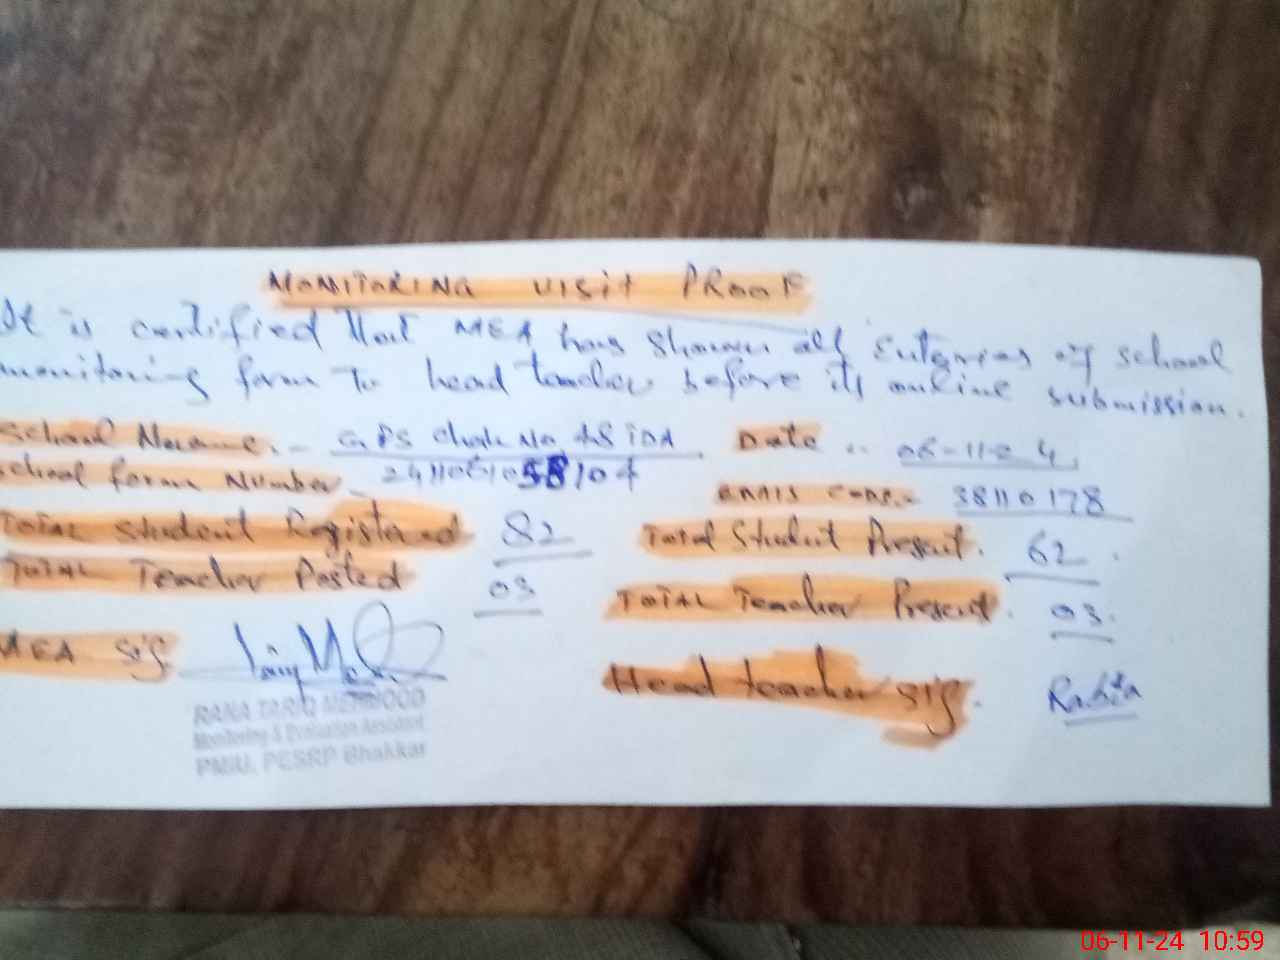 MONITORING VISIT PROOF
It is certified that MEA has shown all enteries of school
monitoring form to head teacher before its online submission.
School Name :- G.PS chak No 48 TDA Date :- 06-11-24
School form Number
EMIS CODE :- 38110178
TOTAL Student Registered 82 Total Student Present. 62
TOTAL Teacher Posted 03 TOTAL Teacher Present. 03.
MEA Sig Head teacher sig.
RANA TARIQ MEHMOOD
Monitoring & Evaluation Assistant
PMIU, PESRP Bhakkar
06-11-24 10:59